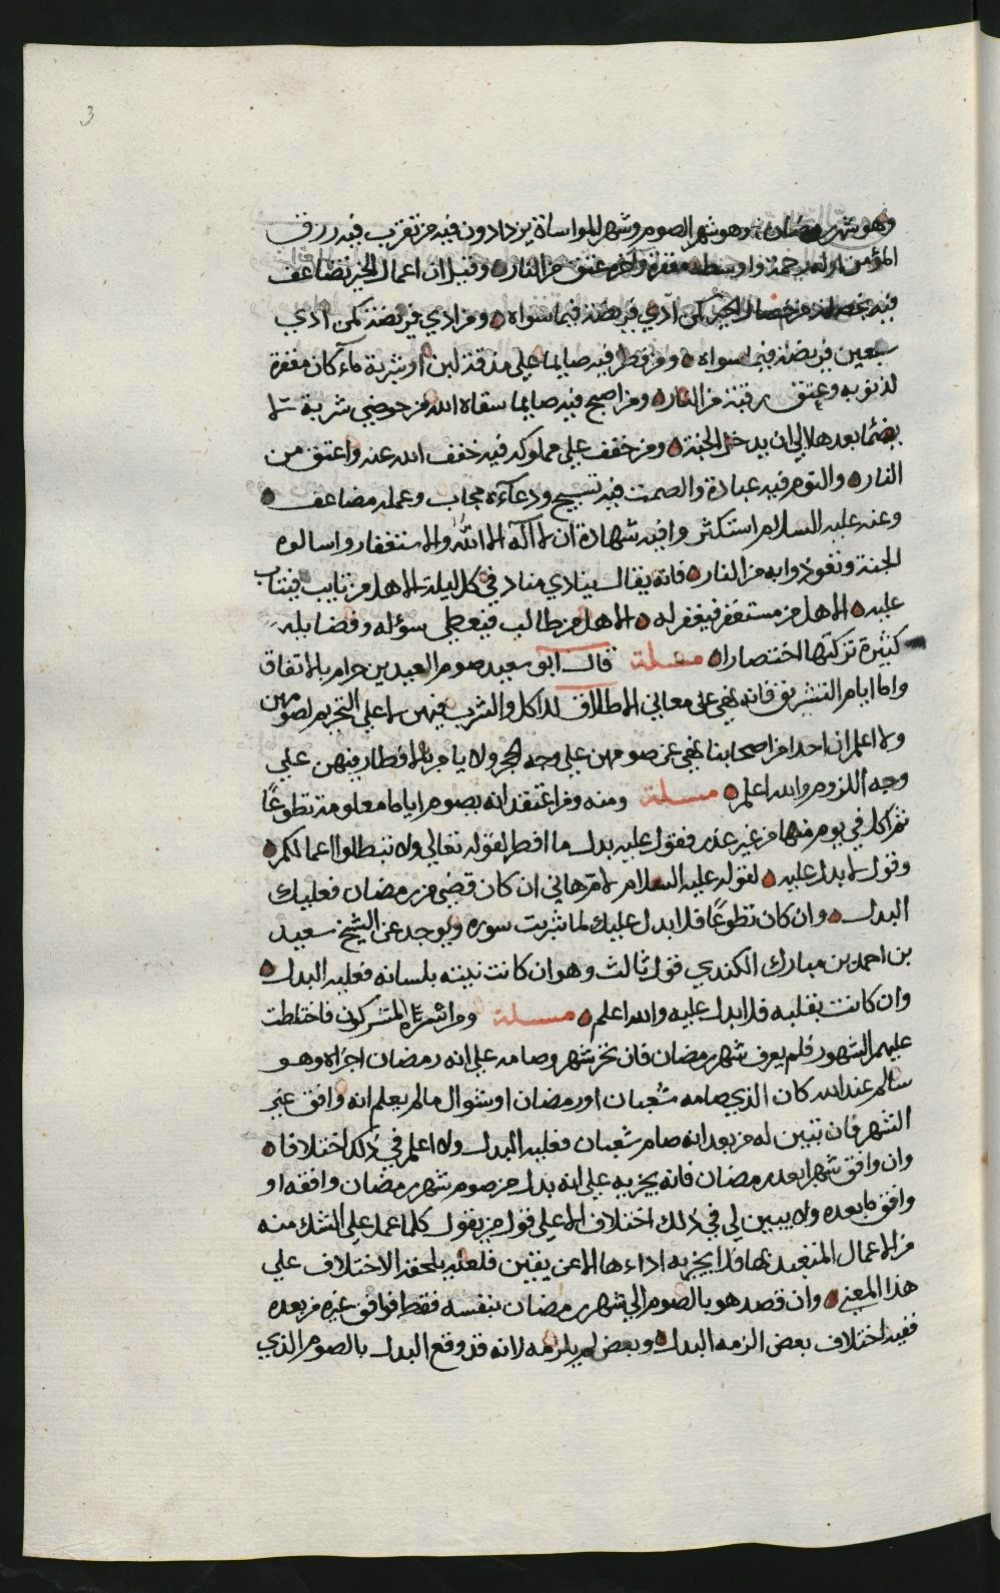 3
وهو شهر رمضان وهو شهر الصوم وشهر المواساة يزدادون فيه من تقرب فيه رزق
المؤمن اوله رحمة واوسطه مغفرة واخره عتق من النار وقيل ان اعمال الخير تضاعف
فيه بخصلة من خصال الخير كمن ادي فريضة فيما سواه ومن ادي فريضة كمن ادي
سبعين فريضة فيما سواه ومن فطر فيه صايما علي مذقة لبن او شربة ماء كان مغفرة
لذنوبه وعتق رقبته من النار ومن اصبح فيه صايما سقاه الله من حوضي شربة لا
يضمأ بعدها الي ان يدخل الجنة ومن خفف علي مملوكه فيه خفف الله عنه واعتق من
النار والنوم فيه عبادة والصمت فيه تسبيح ودعآءه مجاب وعمله مضاعف
وعنه عليه السلام استكثروا فيه شهادة ان لا اله الا الله والاستغفار واسالوه
الجنة وتعوذوا به من النار فانه يقال ينادي مناد في كل ليلة الا هل من تايب فيتاب
عليه الا هل من مستغفر فيغفر له الا هل من طالب فيعطي سؤله وفضايله
كثيرة تركتها اختصارا مسلة قال ابو سعيد صوم العيدين حرام بالاتفاق
واما ايام التشريق فانه نهي علي معاني الاطلاق للاكل والشرب فيهن لا علي التحريم لصومهن
ولا اعلم ان احدا من اصحابنا نهي عن صومهن علي وجه الحجر ولا يامر بالافطار فيهن علي
وجه اللزوم والله اعلم مسلة ومنه ومن اعتقد انه يصوم اياما معلومة تطوعًا
ثم اكل في يوم منها من غير عذر فقول عليه بدل ما افطر لقوله تعالي ولا تبطلوا اعمالكم
وقول لا بدل عليه لقوله عليه السلام لام هاني ان كان قضي من رمضان فعليك
البدل وان كان تطوعًا فلا بدل عليك لما شربت سوره ويوجد عن الشيخ سعيد
بن احمد بن مبارك الكندي قول ثالث وهو ان كانت نيته بلسانه فعليه البدل
وان كانت بقلبه فلا بدل عليه والله اعلم مسلة ومن اسره المشركون فاختلطت
عليهم الشهور فلم يعرف شهر رمضان فان تحر شهر وصامه علي انه رمضان اجزاه وهو
سالم عند الله كان الذي صامه شعبان او رمضان او شوال ما لم يعلم انه وافق غير
الشهر فان تبين له من بعد انه صام شعبان فعليه البدل ولا اعلم في ذلك اختلافا
وان وافق شهرا بعد رمضان فانه يجزيه علي انه بدل من صوم شهر رمضان وافقه او
وافق ما بعده ولا يبين لي في ذلك اختلاف الا علي قول من يقول كلما عمل علي الشك منه
من الاعمال المتعبد بها فلا يجزيه اداءها الا عن يقين فلعله يلحقه الاختلاف علي
هذا المعني وان قصد هو بالصوم الي شهر رمضان بنفسه فقط فوافق غيره من بعده
ففيه اختلاف بعض الزمه البدل وبعض لم يلزمه لانه قد وقع البدل بالصوم الذي